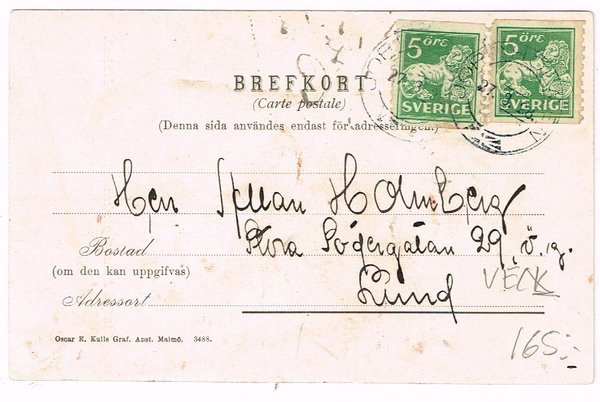 5 öre
SVERIGE
5 öre
SVERIGE
27
BREFKORT
(Carte postale)
(Denna sida användes endast för adresseringen.)
Herr Holmberg
Stora Södergatan 29, ö. g.
Bostad
(om den kan uppgifvas)
VECK
Adressort
Lund
Oscar E. Kulls Graf. Anst. Malmö. 3488.
165:-